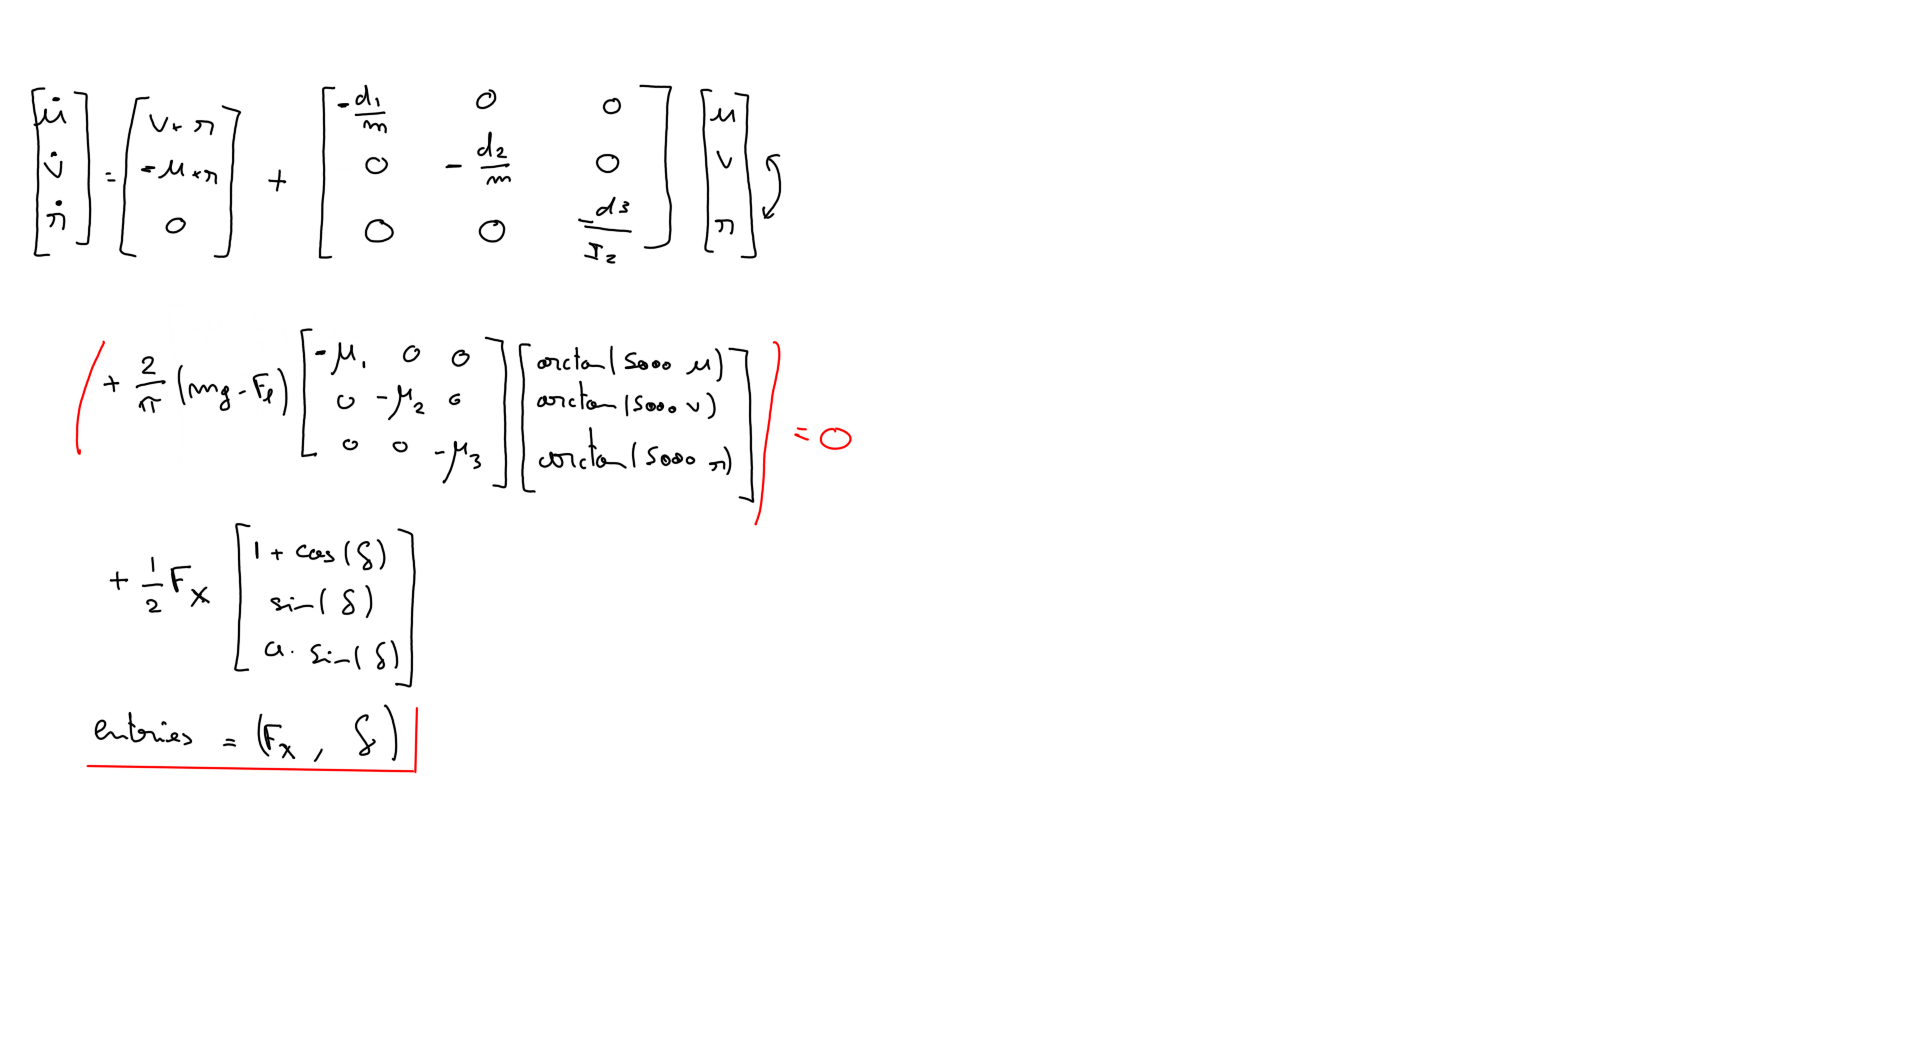 [u̇ v̇ ṙ] = [v * r, -u * r, 0] + [-d₁/m 0 0, 0 -d₂/m 0, 0 0 -d₃/I₂] [u v r]
( + 2/π (mg - Fₗ) [-μ₁ 0 0, 0 -μ₂ 0, 0 0 -μ₃] [arctan(5000 u), arctan(5000 v), arctan(5000 r)] ) = 0
+ 1/2 Fₓ [1 + cos(δ), sin(δ), a. sin(δ)]
entries = (Fₓ, δ)